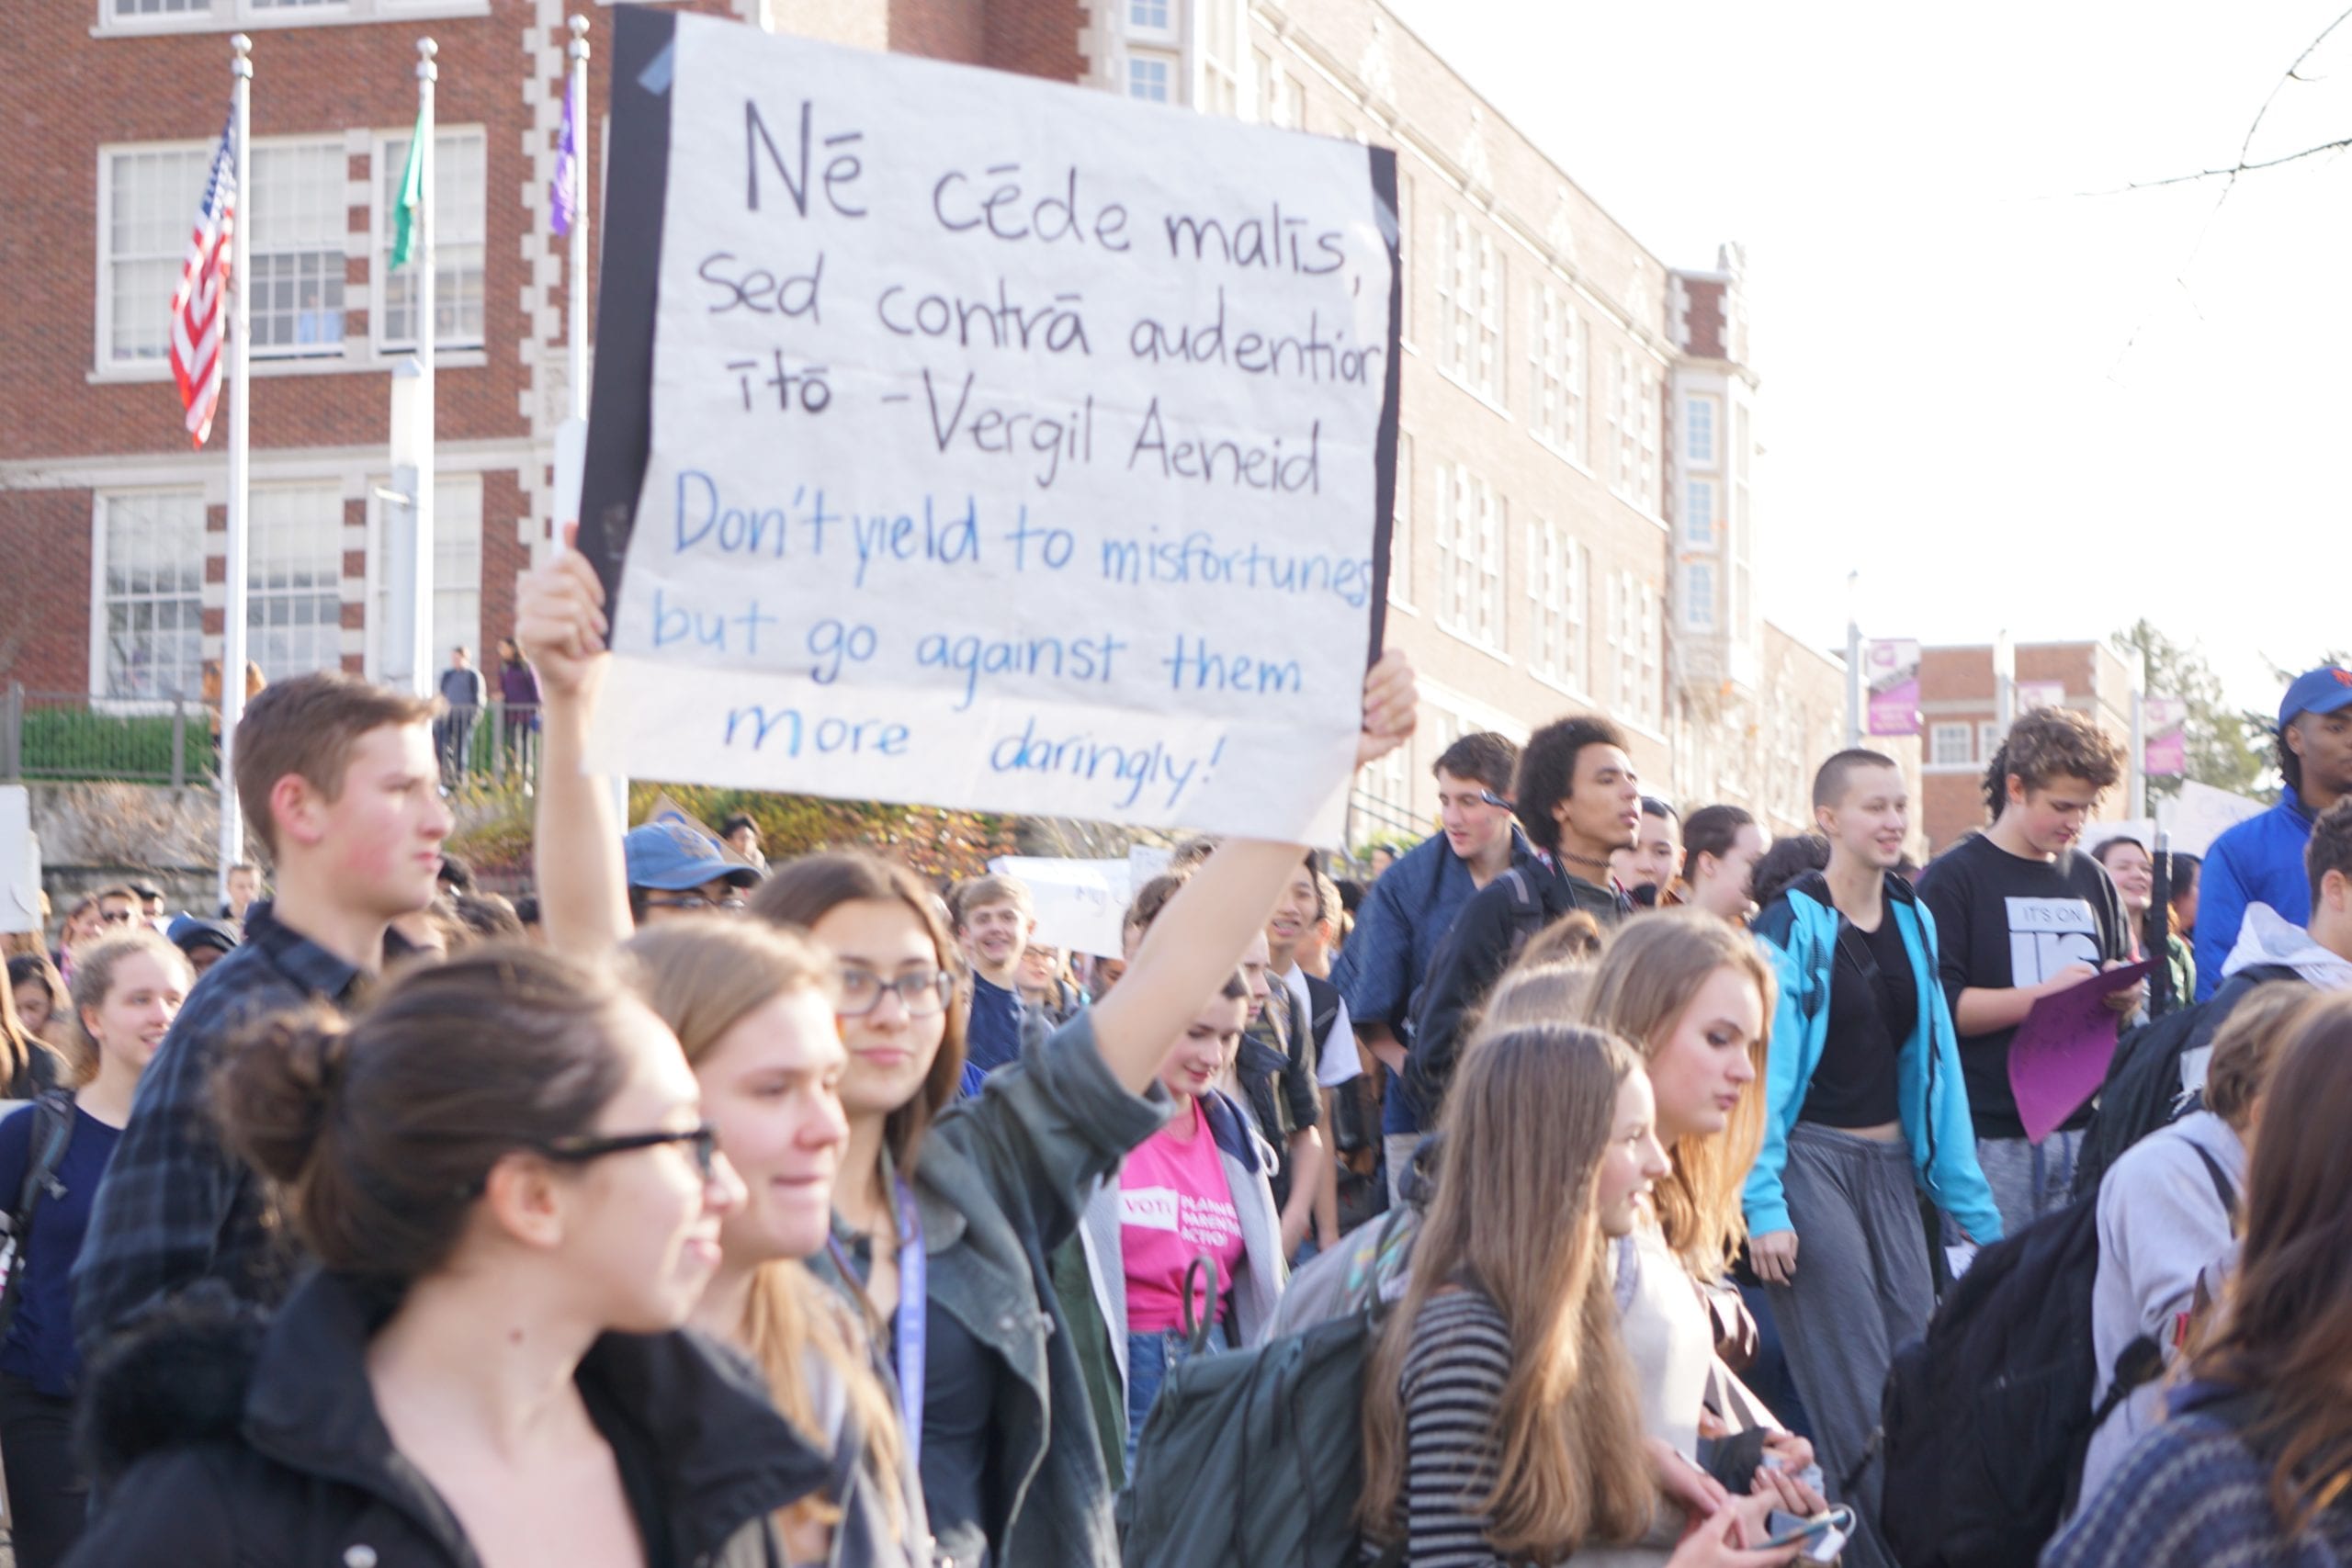 Nē cēde malīs,
sed contrā audentior
ītō - Vergil Aeneid
Don't yield to misfortunes
but go against them
more daringly!
IT'S ON
VOTE
PLANNED
PARENTHOOD
ACTION